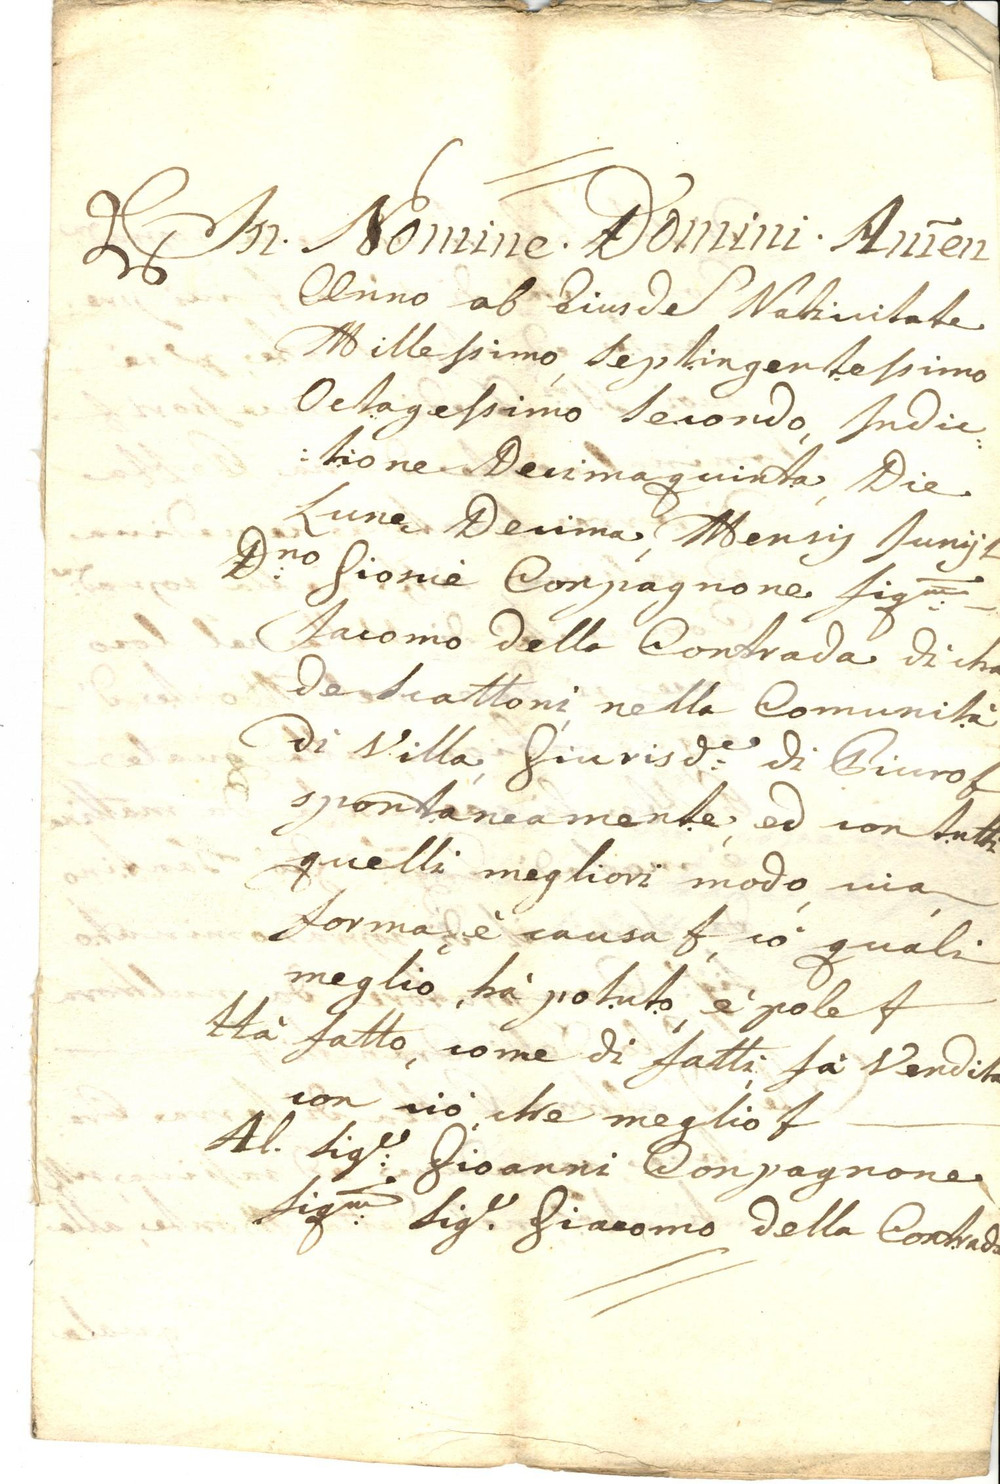 In. Nomine. Domini. Amen
Anno ab Eiusde Nativitate
Millessimo, Septingentessimo
Octagessimo Secondo, Indic:
:tione Decimaquinta, Die
Lune Decima, Mensis Junij
Dno Giosuè Conpagnone figm:
Jacomo della Contrada di cha
de Scattoni, nella Comunità
di Villa, Giurisd:e di Piuro
spontaneamente, ed con tutti
quelli megliori modo, via,
forma, è causa f, cò quali
meglio, hà potuto, è pole f
Hà fatto, come di fatti, fà Vendita
con ciò, che meglio f
Al. Sigr: Gioanni Conpagnone
figm: Sigr. Giacomo della Contrada